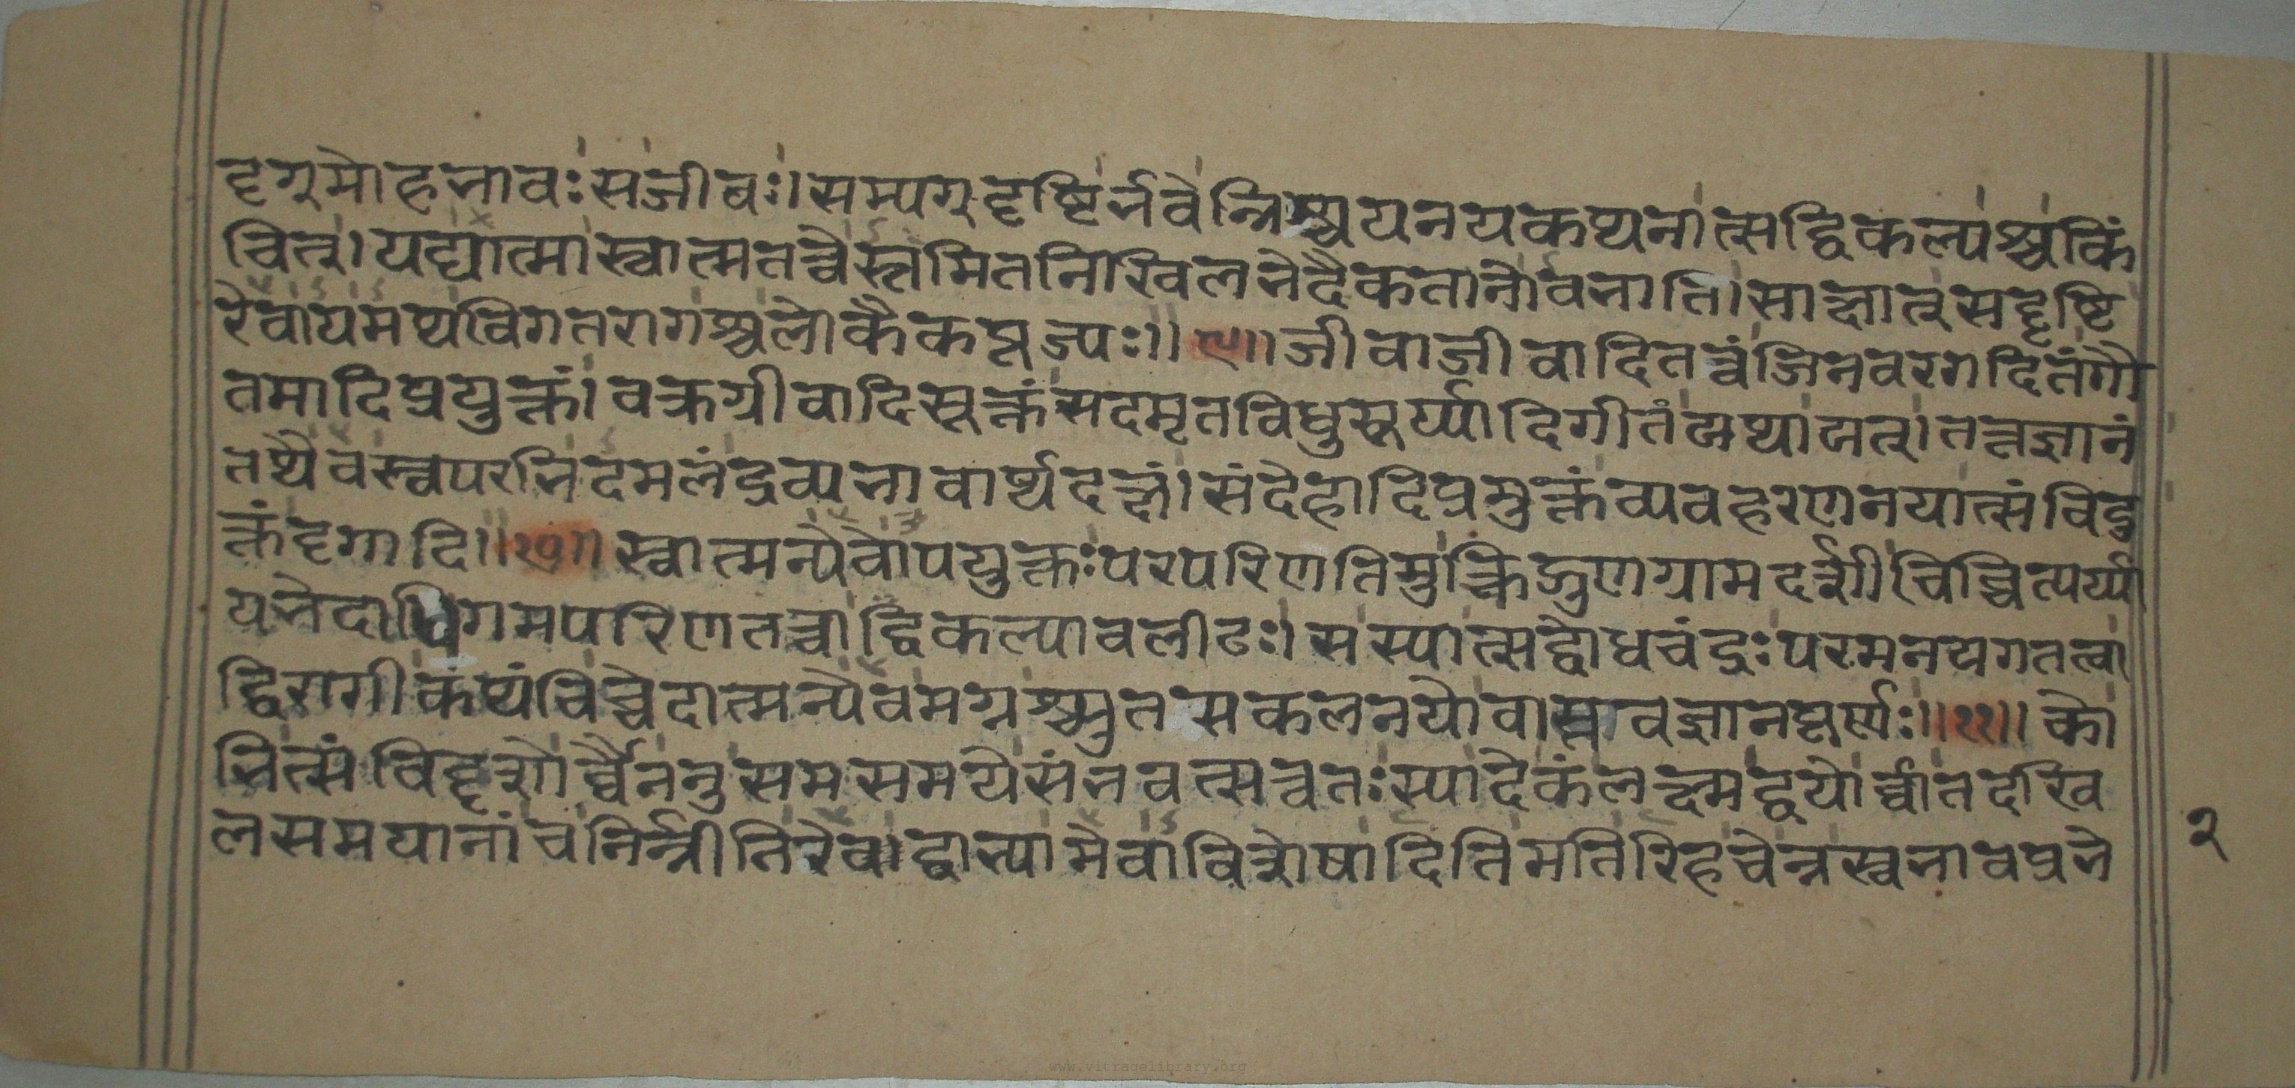 दृग्मोहभावः सजीवः। सम्यग्दृष्टिर्भवेन्निश्चयनयकथनात्सद्विकल्पश्च किं
चित्। यद्यात्मा स्वात्मतत्वे स्तमितनिखिलभेदैकतानो वभाति। साक्षात् सद्दृष्टि
रेवायमथविगतरागश्च लोकैकपूज्यः।। ९।। जीवाजीवादितत्वं जिनवरगदितं गौ
तमादिप्रयुक्तं। वक्रग्रीवादिसूक्तं सदमृतविधुसूर्य्यादिगीतं यथायत्। तत्तज्ञानं
तथैव स्वपरभिदमलं द्रव्यभावार्थदक्षं। संदेहादिप्रमुक्तं व्यवहरणनयात्संविदु
क्तं दृगादि।। १०।। स्वात्मन्येवोपयुक्तः परपरिणतिमुच्चिद्गुणग्रामदर्शी चिच्चित्पर्य्या
यभेदाधिगमपरिणतत्वाद्विकल्पावलीढः। सस्यात्सद्बोधचंद्रः परमनयगतत्वा
द्विरागी कथंचिच्चेदात्मन्येव मग्नश्च्युतसकलनयो वास्तवज्ञानपूर्णः।। ११।। को
भित्संविदृशोर्वै ननु समसमये संभवत्सत्वतः स्यादेकं लक्ष्म द्वयोर्वा तदखि
लसमयानां च निर्भीतिरेव। द्वाभ्यामेवाविशेषादितिमतिरिह चेन्न स्वभावप्रभे
२
www.vitragelibrary.org